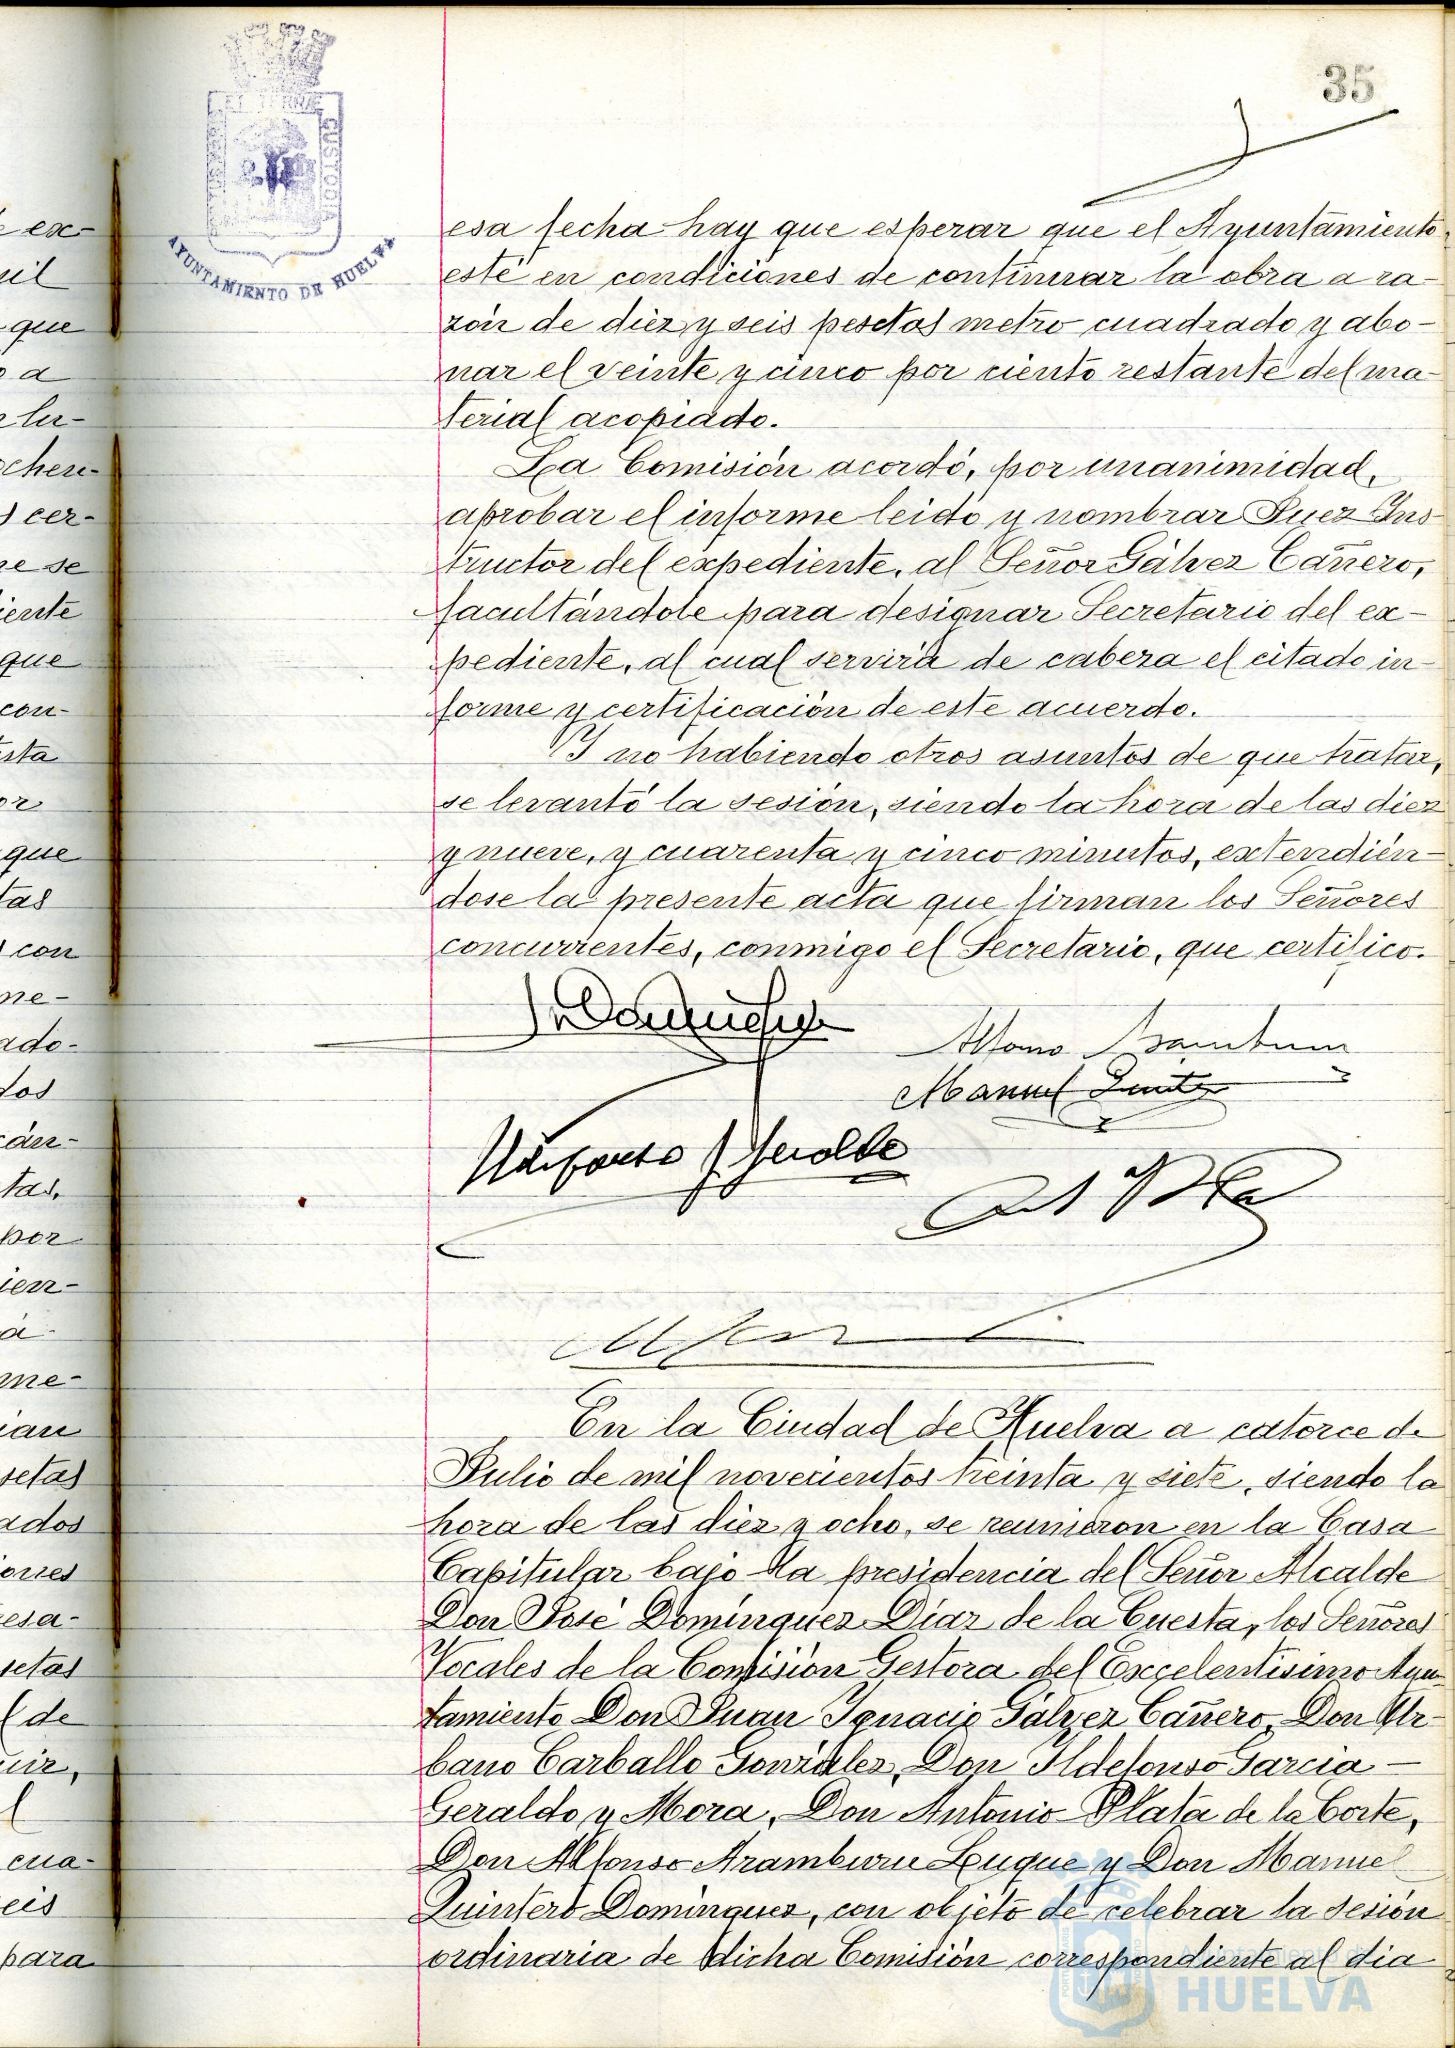 35
ET TERRAE
CUSTODIA
AYUNTAMIENTO DE HUELVA
esa fecha hay que esperar que el Ayuntamiento
esté en condiciones de continuar la obra a ra-
zón de diez y seis pesetas metro cuadrado y abo-
nar el veinte y cinco por ciento restante del ma-
terial acopiado.
La Comisión acordó, por unanimidad,
aprobar el informe leido y nombrar Juez Ins-
tructor del expediente, al Señor Gálvez Cañero,
facultándole para designar Secretario del ex-
pediente, al cual servirá de cabeza el citado in-
forme y certificación de este acuerdo.
Y no habiendo otros asuntos de que tratar,
se levantó la sesión, siendo la hora de las diez
y nueve, y cuarenta y cinco minutos, extendién-
dose la presente acta que firman los Señores
concurrentes, conmigo el Secretario, que certifico.
Alfonso Aramburu
Manuel Quintero
Ildefonso G. Geraldo
Ant Plata
En la Ciudad de Huelva a catorce de
Julio de mil novecientos treinta y siete, siendo la
hora de las diez y ocho, se reunieron en la Casa
Capitular bajo la presidencia del Señor Alcalde
Don José Domínguez Díaz de la Cuesta, los Señores
Vocales de la Comisión Gestora del Excelentísimo Ayun-
tamiento Don Juan Ignacio Gálvez Cañero, Don Ur-
bano Carballo González, Don Ildefonso Garcia-
Geraldo y Mora, Don Antonio Plata de la Corte,
Don Alfonso Aramburu Luque y Don Manuel
Quintero Domínguez, con objeto de celebrar la sesión
ordinaria de dicha Comisión correspondiente al dia
Ayuntamiento de
HUELVA